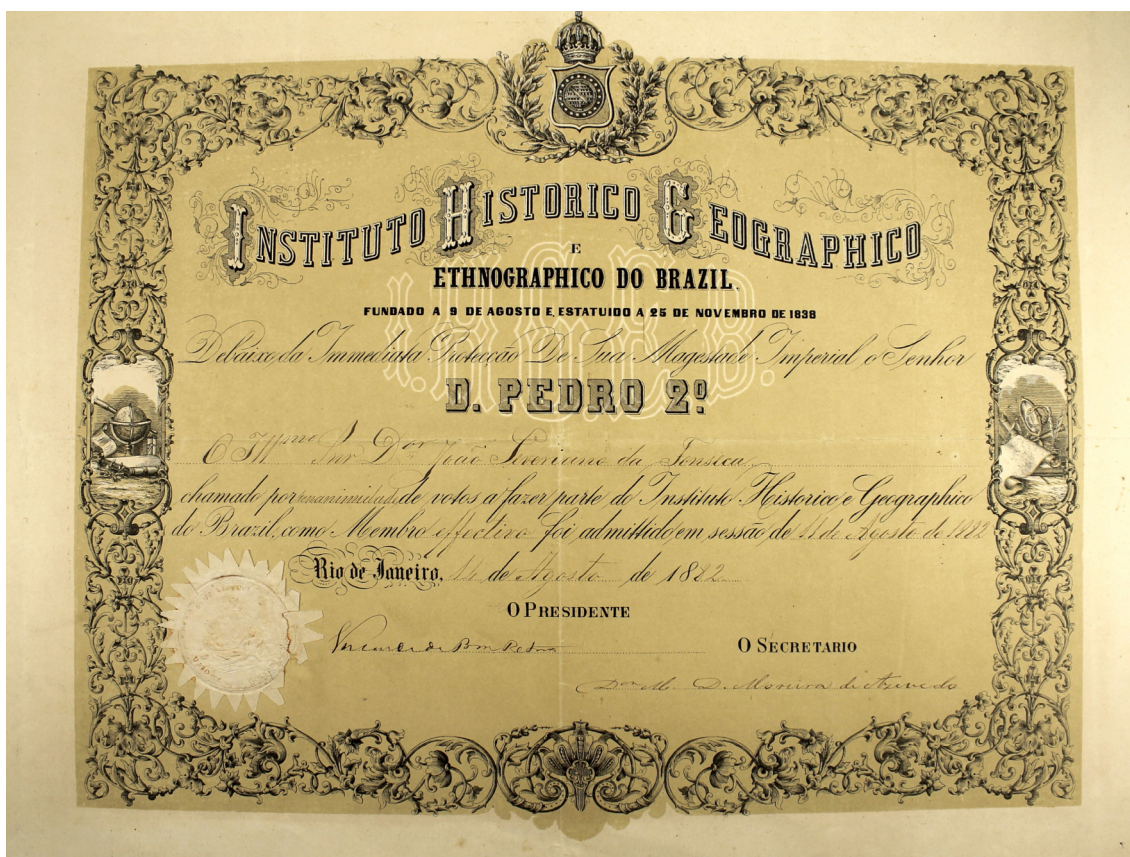 INSTITUTO HISTORICO GEOGRAPHICO
E
ETHNOGRAPHICO DO BRAZIL.
FUNDADO A 9 DE AGOSTO E ESTATUIDO A 25 DE NOVEMBRO DE 1838
I.H.G.E.B.
Debaixo da Immediata Protecção De Sua Magestade Imperial o Senhor
D. PEDRO 2º
O Illmo Snr Dor João Severiano da Fonseca
chamado por unanimidade de votos a fazer parte do Instituto Historico e Geographico
do Brazil, como Membro effectivo foi admittido em sessão de 11 de Agosto de 1882
Rio de Janeiro, 14 de Agosto de 1882
O PRESIDENTE
Visconde de Bom Retiro
O SECRETARIO
Dor M. D. Moreira de Azevedo